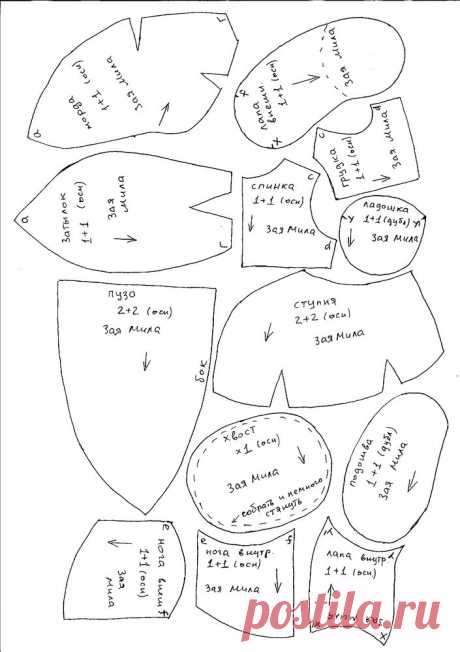 морда
1+1 (оси)
Зая Мила
а
г
лапа
внешн
1+1 (оси)
Зая Мила
х
грудка
1+1 (оси)
Зая Мила
с
d
затылок
1+1 (оси)
Зая
Мила
а
г
спинка
1+1 (оси)
Зая Мила
с
d
ладошка
1+1 (дубл)
Зая Мила
у
л
пузо
2+2 (оси)
Зая Мила
бок
ступня
2+2 (оси)
Зая Мила
хвост
х1 (оси)
Зая Мила
собрать и немного
стянуть
подошва
1+1 (дубл)
Зая Мила
нога внеш
1+1 (оси)
Зая
Мила
е
f
нога внутр.
1+1 (оси)
Зая Мила
е
f
лапа внутр
1+1 (оси)
Зая Мила
х
postila.ru